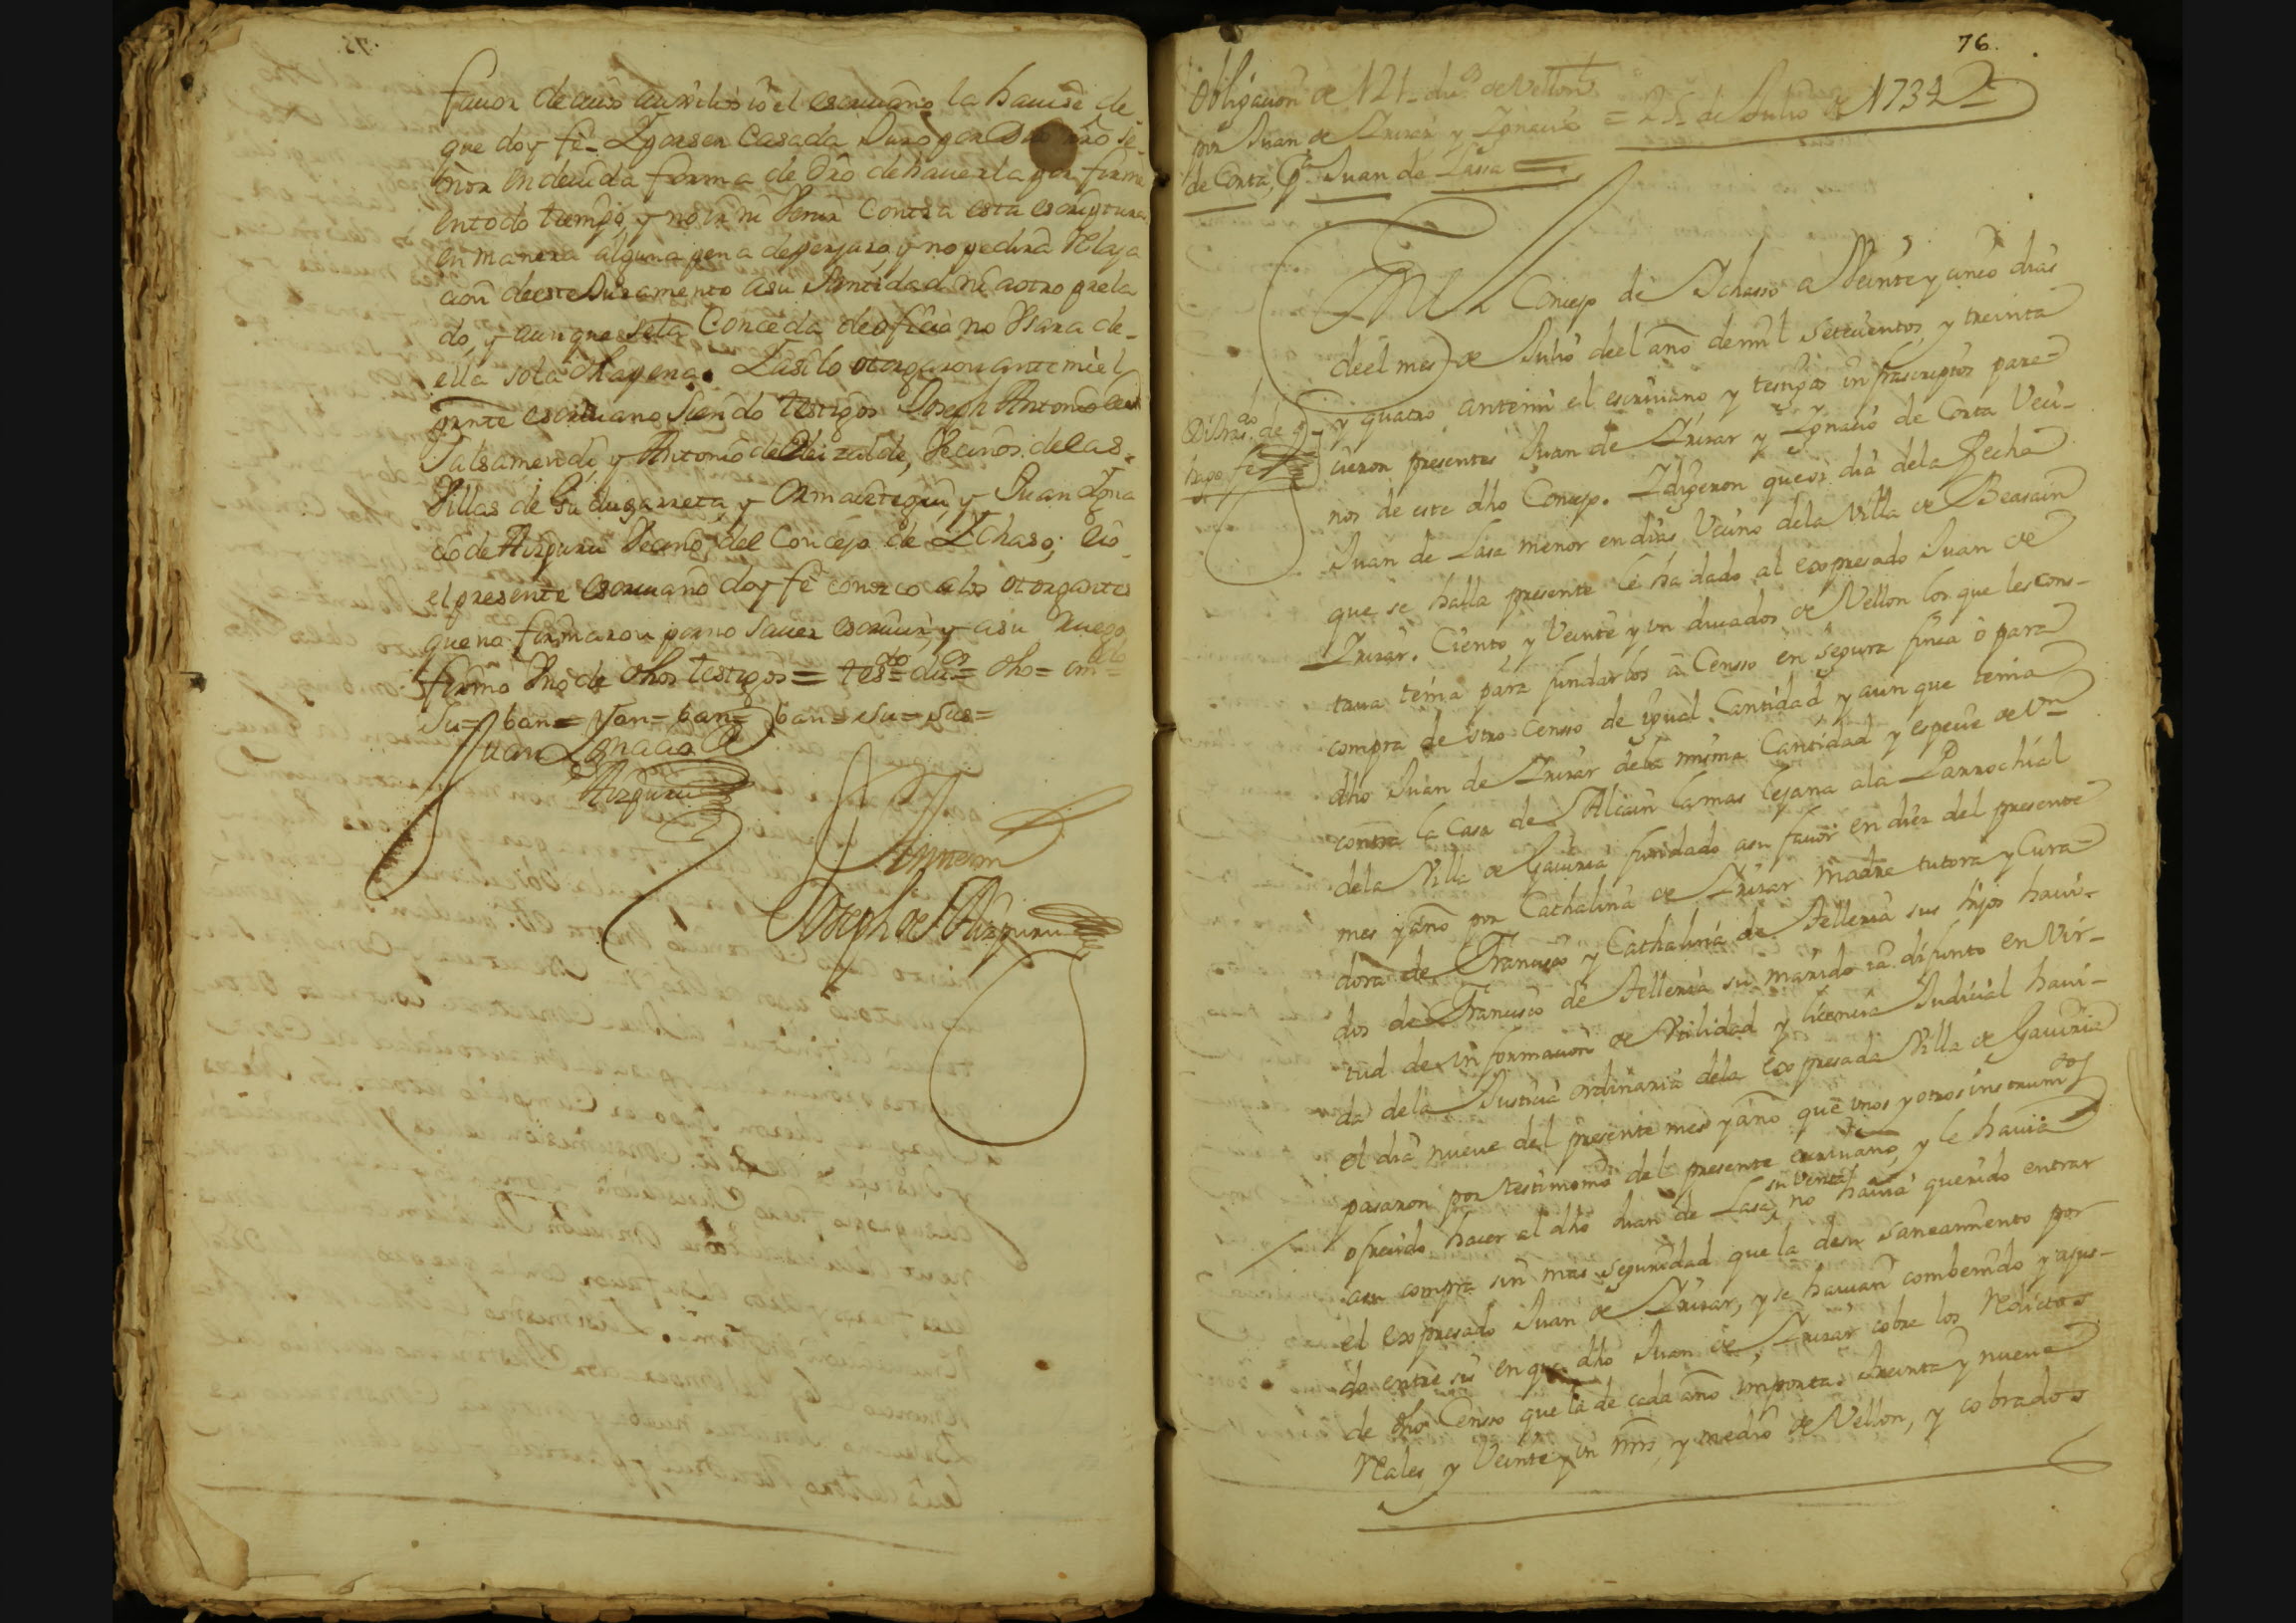 favor de cuio auxilio io el escriuano la hauise de
que doy fê. Y por ser Casada Juro por Dios nrô Se-
ñor en deuida forma de Drô de hauerla por firme
en todo tiempo, y no ir ni Venir Contra esta escriptura
en manera alguna pena de perjuro, y no pedira Relaja
cion de este Juramento a su Santidad ni a otro prela
do, y aunque se la Conceda de oficio no Vsara de-
ella so la dha pena. Y asi lo otorgaron ante mi el
prnte escriuano siendo testigos Joseph Antonio de
Jalsamendi, y Antonio de Oleizalde, Vecinos de las-
Villas de Gudugarreta, y Ormaiztegui, y Juan Igna
cio de Aizpuru Vecino del Concejo de Ychaso; Eio
el presente escriuano doy fê conozco a los otorgantes
que no firmaron por no sauer escriuir, y a su Ruego
firmô Vno de dhos testigos = tesdo = du.os = dho = em.do =
Su = ban = y an = ban = ban = su = sus =
Juan Ignacio de
Aizpuru
Ante mi
Joseph de Aizpuru
76.
Obligacion de 121 du.os de Vellon
por Juan de Irizar y Ignacio = 25 de Julio de 1734
de Corta, Pª Juan de Lassa =
En el Concejo de Ychasso a Veinte y cinco dias
de el mes de Julio de el año de mil setecientos, y treinta
y quatro ante mi el escriuano y testigos infrascriptos pare-
cieron presentes Juan de Irizar y Ignacio de Corta Veci-
nos de este dho Concejo. Y digeron que oi dia de la fecha
Juan de Lasa menor en dias Vecino de la Villa de Beasain
que se halla presente le ha dado al expresado Juan de
Irizar. Ciento y Veinte y vn ducados de Vellon los que les cons-
taua tenia para fundarlos a Censso en segura finca ô para
compra de otro Censso de igual Cantidad y aunque tenia
dho Juan de Irizar de la misma Cantidad y especie de Vn
contra la Casa de Alcain la mas lejana a la Parrochial
de la Villa de Gauiria fundado a su fauor en diez del presente
mes y año por Cathalina de Irizar madre tutora y Cura-
dora de Francisco y Cathalina de Telleria sus hijos haui-
dos de Francisco de Telleria su marido ia difunto en Vir-
tud de informacion de Vtilidad y licencia Judicial haui-
da de la Justicia ordinaria de la expresada Villa de Gauiria
el dia nueve del presente mes y año que vnos y otros instrum.tos
pasaron por testimonio del presente escriuano, y le hauia
ofrecido hacer al dho Juan de Lasa, su venta, no hauia querido entrar
a su compra sin mas seguridad que la de su saneamiento por
el expresado Juan de Irizar, y se hauian combenido y ajus-
do entre si en que dho Juan de Irizar cobre los Reditos
de dho Censso que la de cada año importa. treinta y nueve
Reales, y Veinte y vn mrs, y medio de Vellon, y cobrados